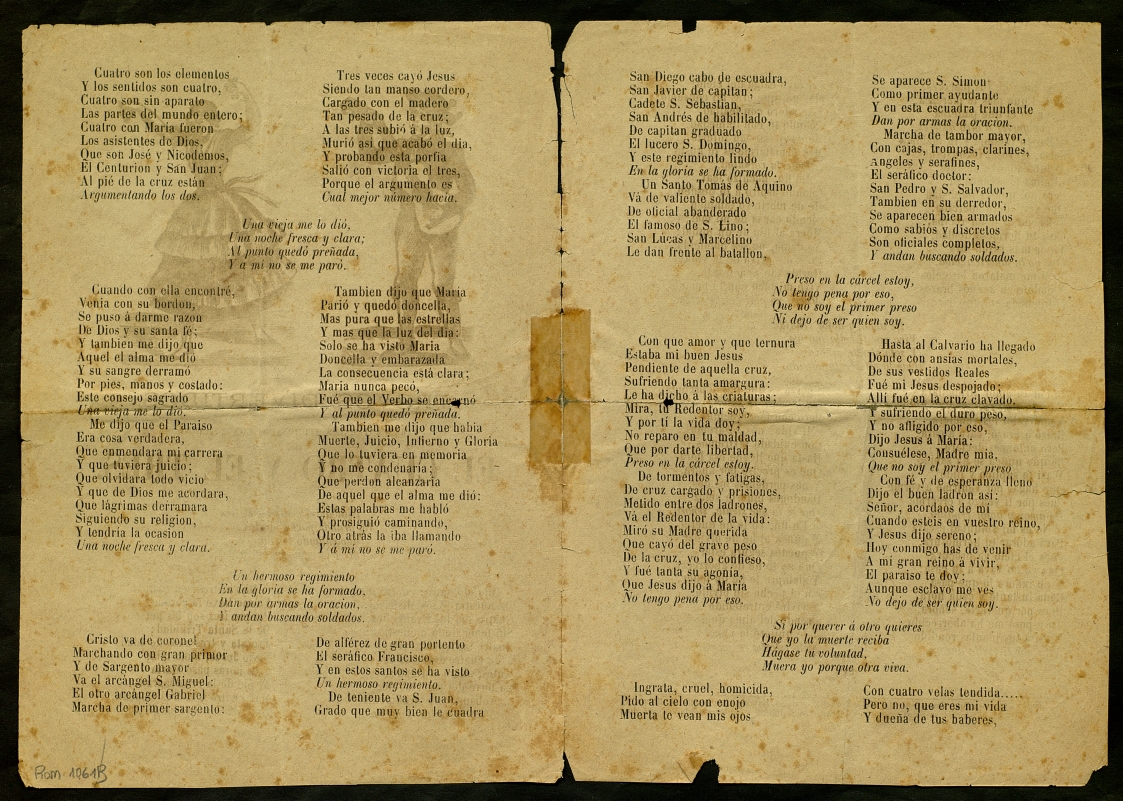 Cuatro son los elementos
Y los sentidos son cuatro,
Cuatro son sin aparato
Las partes del mundo entero;
Cuatro con María fueron
Los asistentes de Dios,
Que son José y Nicodemos,
El Centurion y San Juan;
Al pié de la cruz están
Argumentando los dos.
Tres veces cayó Jesus
Siendo tan manso cordero,
Cargado con el madero
Tan pesado de la cruz;
A las tres subió á la luz,
Murió así que acabó el dia,
Y probando esta porfia
Salió con victoria el tres,
Porque el argumento es
Cual mejor número hacia.
Una vieja me lo dió,
Una noche fresca y clara;
Al punto quedó preñada,
Y a mi no se me paró.
Cuando con ella encontré,
Venia con su bordon,
Se puso á darme razon
De Dios y su santa fé;
Y tambien me dijo que
Aquel el alma me dió
Y su sangre derramó
Por pies, manos y costado:
Este consejo sagrado
Una vieja me lo dió.
Me dijo que el Paraiso
Era cosa verdadera,
Que enmendara mi carrera
Y que tuviera juicio;
Que olvidara todo vicio
Y que de Dios me acordara,
Que lágrimas derramara
Siguiendo su religion,
Y tendria la ocasion
Una noche fresca y clara.
Tambien dijo que Maria
Parió y quedó doncella,
Mas pura que las estrellas
Y mas que la luz del dia:
Solo se ha visto Maria
Doncella y embarazada
La consecuencia está clara;
Maria nunca pecó,
Fué que el Verbo se encarnó
Y al punto quedó preñada.
Tambien me dijo que habia
Muerte, Juicio, Infierno y Gloria
Que lo tuviera en memoria
Y no me condenaria;
Que perdon alcanzaria
De aquel que el alma me dió:
Estas palabras me habló
Y prosiguió caminando,
Otro atrás la iba llamando
Y á mí no se me paró.
Un hermoso regimiento
En la gloria se ha formado,
Dan por armas la oracion,
Y andan buscando soldados.
Cristo va de coronel
Marchando con gran primor
Y de Sargento mayor
Va el arcángel S. Miguel:
El otro arcángel Gabriel
Marcha de primer sargento:
De alférez de gran portento
El seráfico Francisco,
Y en estos santos se ha visto
Un hermoso regimiento.
De teniente va S. Juan,
Grado que muy bien le cuadra
San Diego cabo de escuadra,
San Javier de capitan;
Cadete S. Sebastian,
San Andrés de habilitado,
De capitan graduado
El lucero S. Domingo,
Y este regimiento lindo
En la gloria se ha formado.
Un Santo Tomás de Aquino
Vá de valiente soldado,
De oficial abanderado
El famoso de S. Lino;
San Lúcas y Marcelino
Le dan frente al batallon,
Se aparece S. Simon
Como primer ayudante
Y en esta escuadra triunfante
Dan por armas la oracion.
Marcha de tambor mayor,
Con cajas, trompas, clarines,
Angeles y serafines,
El seráfico doctor:
San Pedro y S. Salvador,
Tambien en su derredor,
Se aparecen bien armados
Como sabios y discretos
Son oficiales completos,
Y andan buscando soldados.
Preso en la cárcel estoy,
No tengo pena por eso,
Que no soy el primer preso
Ni dejo de ser quien soy.
Con que amor y que ternura
Estaba mi buen Jesus
Pendiente de aquella cruz,
Sufriendo tanta amargura:
Le ha dicho á las criaturas;
Mira, tu Redentor soy,
Y por tí la vida doy;
No reparo en tu maldad,
Que por darte libertad,
Preso en la cárcel estoy.
De tormentos y fatigas,
De cruz cargado y prisiones,
Metido entre dos ladrones,
Vá el Redentor de la vida:
Miró su Madre querida
Que cayó del grave peso
De la cruz, yo lo confieso,
Y fué tanta su agonia,
Que Jesus dijo á Maria
No tengo pena por eso.
Hasta al Calvario ha llegado
Dónde con ansias mortales,
De sus vestidos Reales
Fué mi Jesus despojado;
Allí fué en la cruz clavado,
Y sufriendo el duro peso,
Y no afligido por eso,
Dijo Jesus á María:
Consuélese, Madre mia,
Que no soy el primer preso
Con fé y de esperanza lleno
Dijo el buen ladron asi:
Señor, acordaos de mí
Cuando esteis en vuestro reino,
Y Jesus dijo sereno;
Hoy conmigo has de venir
A mi gran reino á vivir,
El paraiso te doy;
Aunque esclavo me ves
No dejo de ser quien soy.
Si por querer á otro quieres
Que yo la muerte reciba
Hágase tu voluntad,
Muera yo porque otra viva.
Ingrata, cruel, homicida,
Pido al cielo con enojo
Muerta te vean mis ojos
Con cuatro velas tendida.....
Pero no, que eres mi vida
Y dueña de tus haberes,
Rom. 1261B